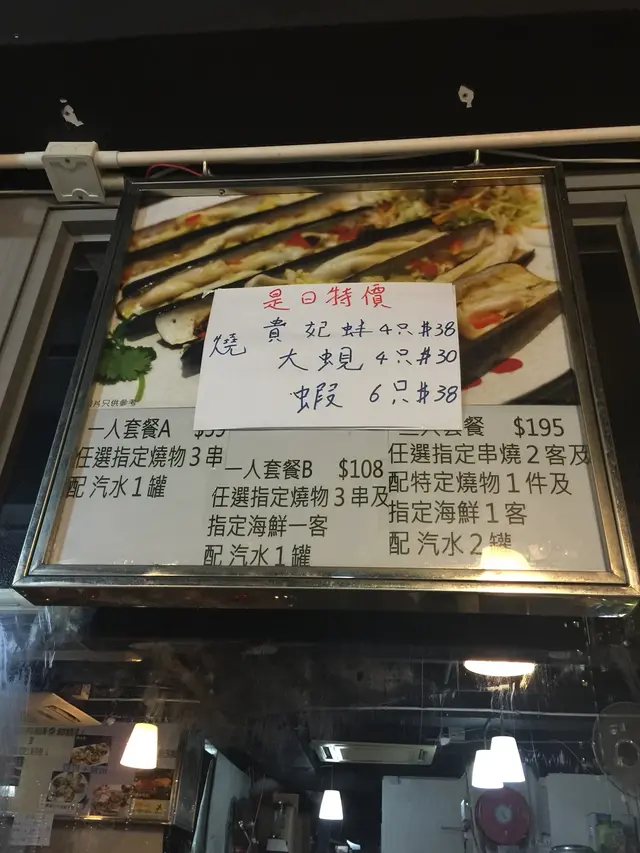 是日特價
燒 貴妃蚌 4只 $38
大蜆 4只 $30
蝦 6只 $38
片只供參考
一人套餐A
任選指定燒物3串
配 汽水1罐
一人套餐B $108
任選指定燒物3串及
指定海鮮一客
配 汽水1罐
人套餐 $195
任選指定串燒2客及
配特定燒物1件及
指定海鮮1客
配 汽水2罐